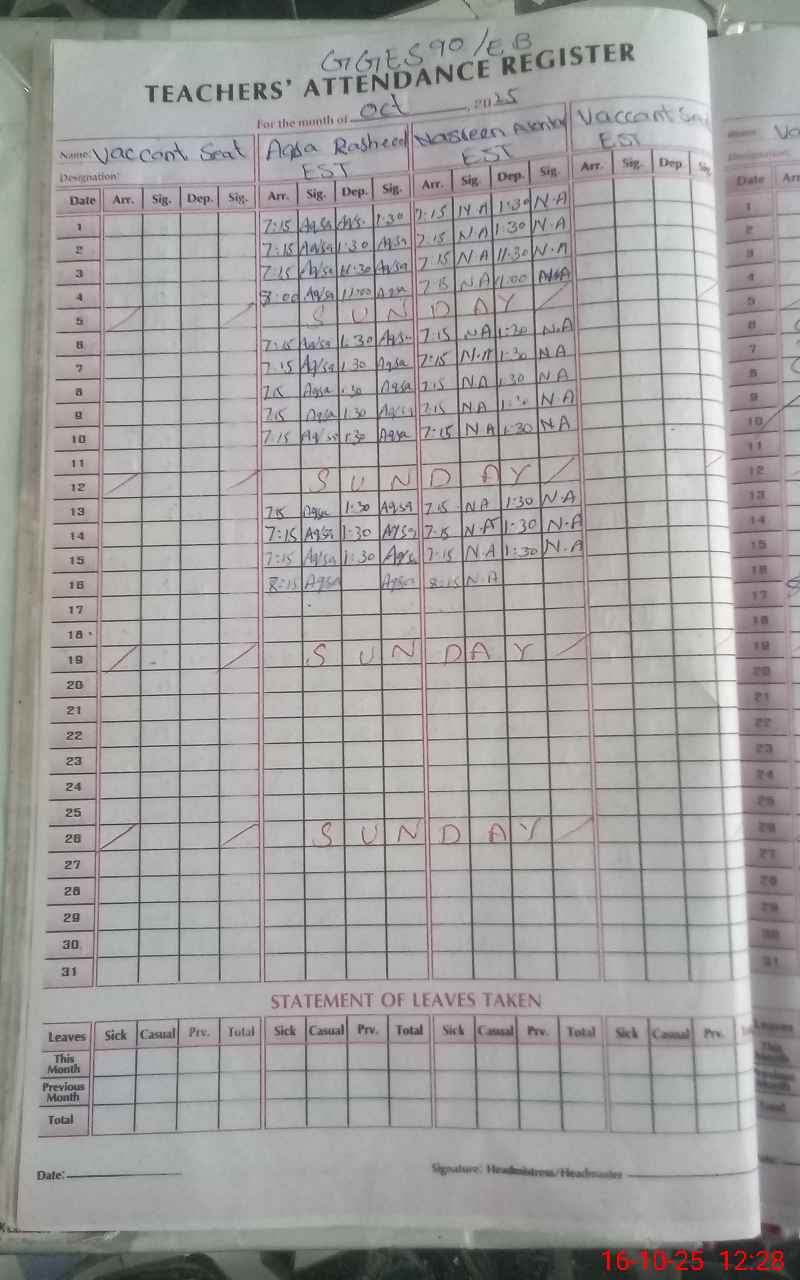 GGES 90/EB
TEACHERS' ATTENDANCE REGISTER
For the month of Oct, 2025
Name: Vaccant Seat Aqsa Rasheed Nasreen Vaccant Seat
Designation: EST EST EST
Date Arr. Sig. Dep. Sig. Arr. Sig. Dep. Sig. Arr. Sig. Dep. Sig. Arr. Sig. Dep Sig.
1 7:15 Aqsa 1:30 7:15 N.A 1:30 N.A
2 7:15 Aqsa 1:30 Aqsa 7:15 N.A 1:30 N.A
3 7:15 Aqsa 11:30 Aqsa 7:15 N A 11:30 N.A
4 8:00 Aqsa 11:00 Aqsa 7:15 N A 11:00
5 S U N D A Y
6 7:15 Aqsa 1:30 Aqsa 7:15 N A 1:30 N.A
7 7:15 Aqsa 1:30 Aqsa 7:15 N.A 1:30 N A
8 7:15 Aqsa 1:30 Aqsa 7:15 N A 1:30 N A
9 7:15 Aqsa 1:30 Aqsa 7:15 N A 1:30 N A
10 7:15 Aqsa 1:30 Aqsa 7:15 N A 1:30 N A
11
12 S U N D A Y
13 7:15 Aqsa 1:30 Aqsa 7:15 N A 1:30 N.A
14 7:15 Aqsa 1:30 Aqsa 7:15 N.A 1:30 N.A
15 7:15 Aqsa 1:30 Aqsa 7:15 N.A 1:30 N.A
16 8:15 Aqsa Aqsa 8:15 N.A
17
18
19 S U N D A Y
20
21
22
23
24
25
26 S U N D A Y
27
28
29
30
31
STATEMENT OF LEAVES TAKEN
Leaves Sick Casual Prv. Total Sick Casual Prv. Total Sick Casual Prv. Total Sick Casual Prv.
This Month
Previous Month
Total
Date: Signature: Headmistress/Headmaster
Va
Date Arr
1
2
3
4
5
6
7
8
9
10
11
12
13
14
15
16
17
18
19
20
21
22
23
24
25
26
27
28
29
30
31
16-10-25 12:28